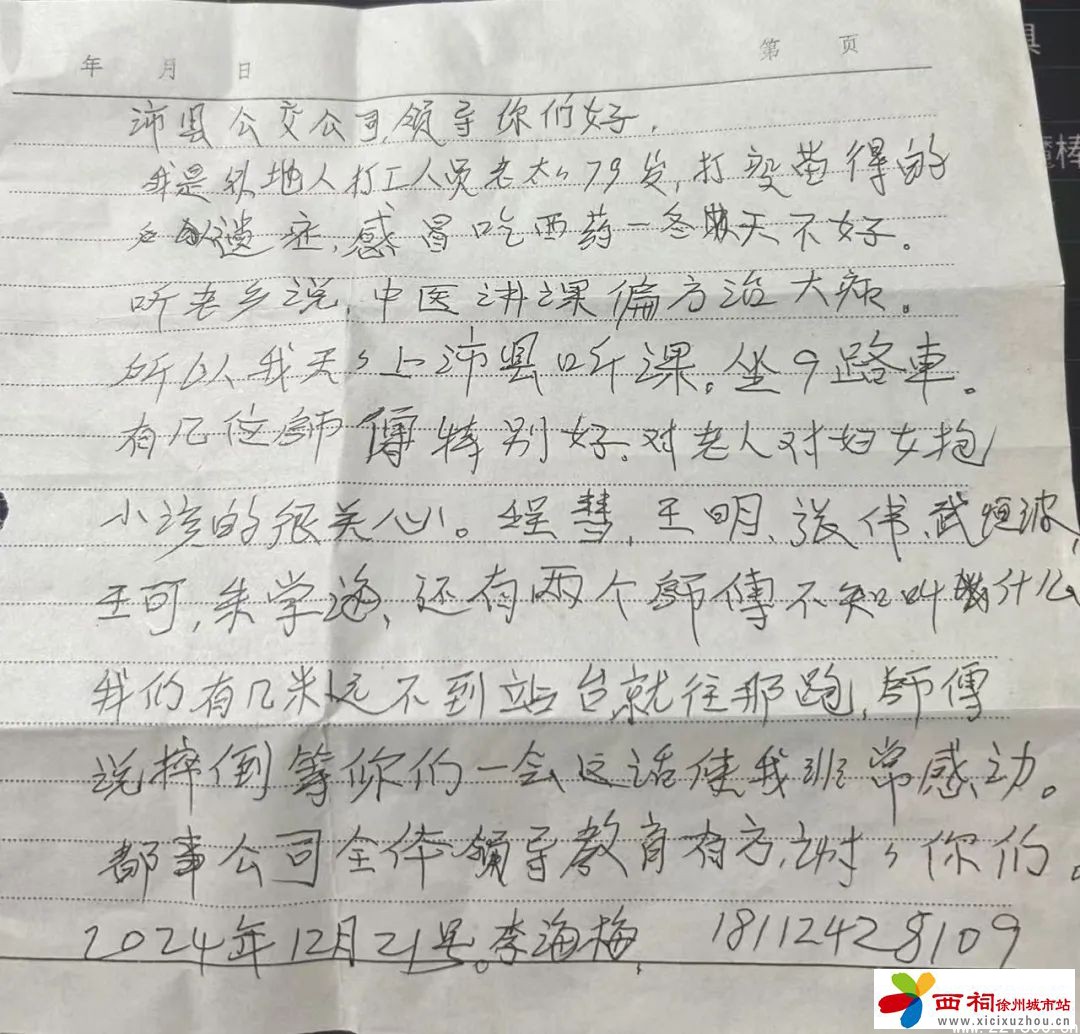 年 月 日 第 页
沛县公交公司,领导你们好,
我是外地人打工人员老太々79岁,打疫苗得的
后遗症,感冒吃西药一冬天不好。
听老乡说,中医讲课偏方治大病。
所以我天々上沛县听课。坐9路車。
有几位師傅特别好。对老人对妇女抱
小孩的很关心。程慧,王明,张伟,武恒波,
王可,朱学海,还有两个師傅不知叫什么
我们有几米远不到站台就往那跑,師傅
说摔倒等你们一会这话使我非常感动。
都事公司全体领导教育有方,谢々你们。
2024年12月21号。李海梅, 18112428109
西祠徐州城市站
www.xicixuzhou.cn